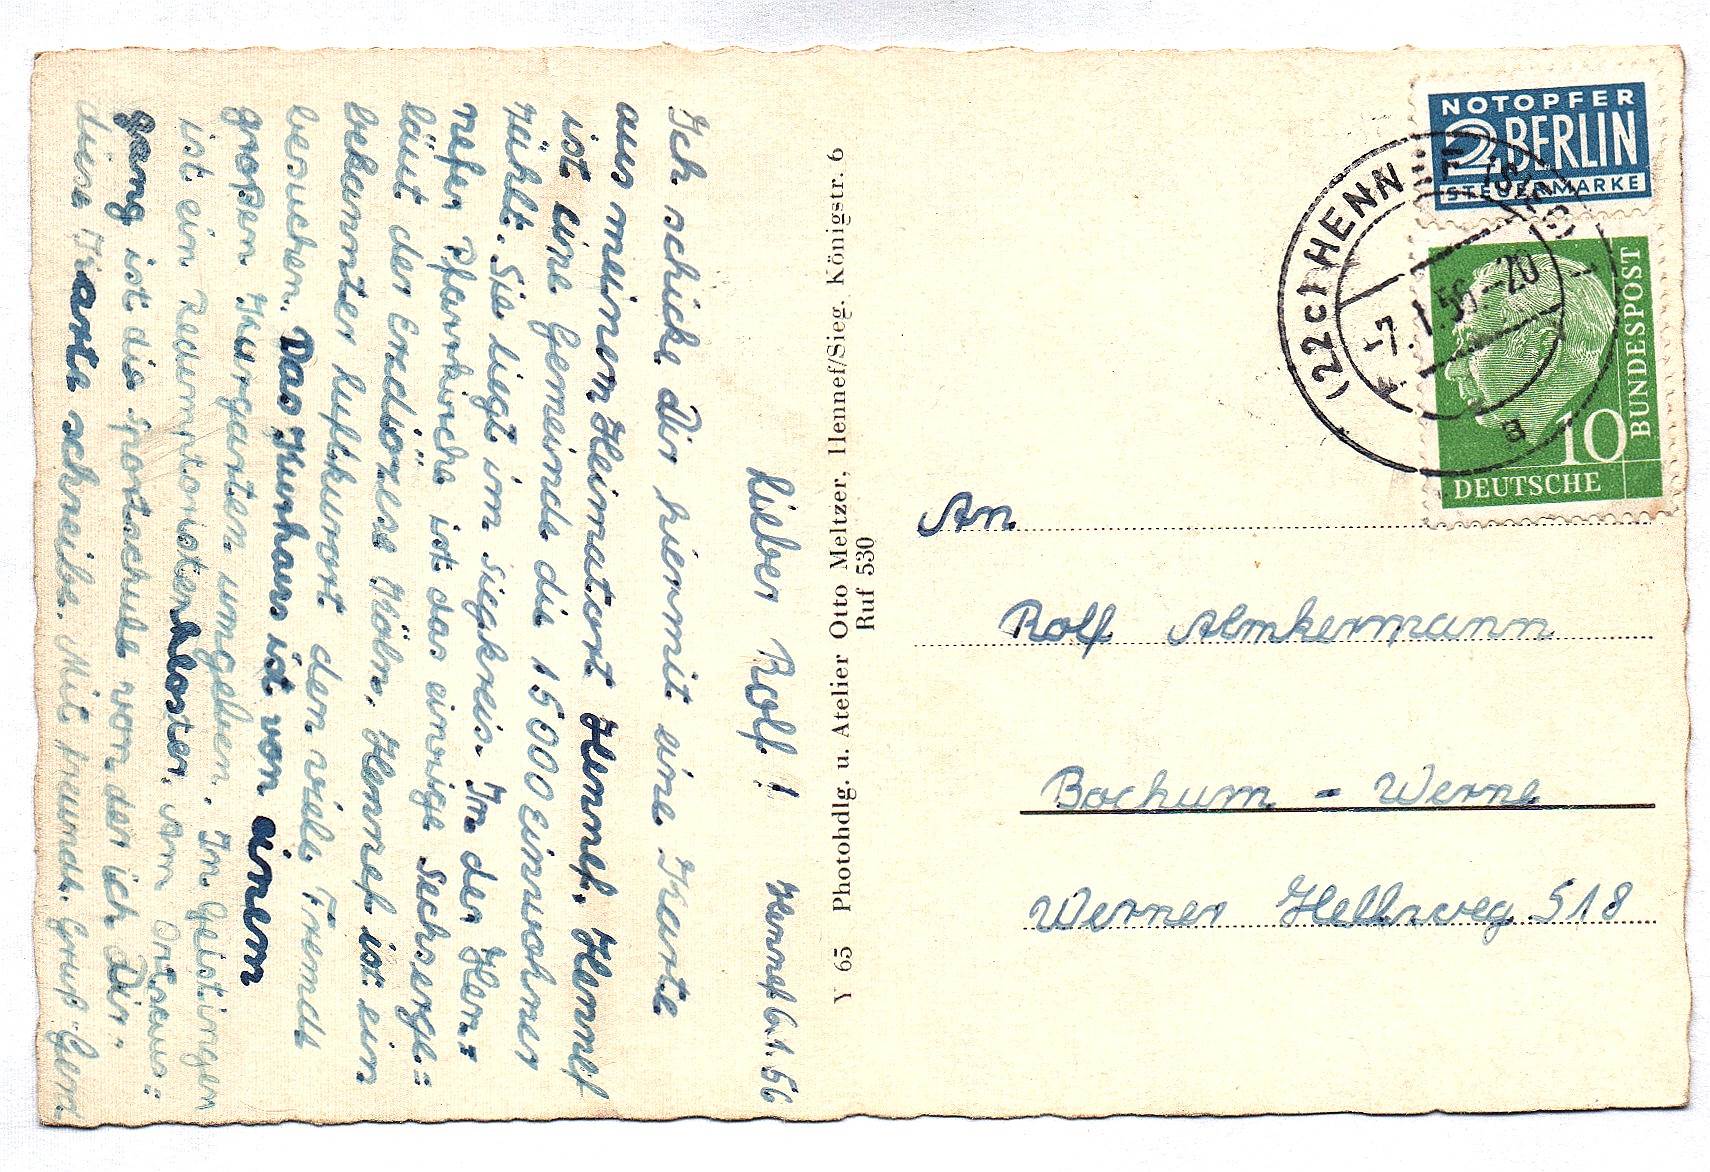 Hennef 6.1.56
Lieber Rolf!
Ich schicke Dir hiermit eine Karte
aus meinem Heimatort Hennef. Hennef
ist eine Gemeinde die 15000 Einwohner
zählt. Sie liegt im Siegkreis. In der Hen=
nefer Pfarrkirche ist das einzige Sechserge=
läut der Erzdiözese Köln. Hennef ist ein
bekannter Luftkurort den viele Fremde
besuchen. Das Kurhaus ist von einem
großen Kurgarten umgeben. In Geistingen
ist ein Redemptoristenkloster. Am Ortsaus=
gang ist die Sportschule von der ich Dir
diese Karte schreibe. Mit freundl. Gruß
Y 65 Photohdlg. u. Atelier Otto Meltzer, Hennef/Sieg. Königstr. 6
Ruf 530
NOTOPFER
2 BERLIN
STEUERMARKE
(22c) HENNEF (SIEG)
-7.1.56-20
a
10
DEUTSCHE
BUNDESPOST
An
Rolf Almkermann
Bochum - Werne
Werner Hellweg 518